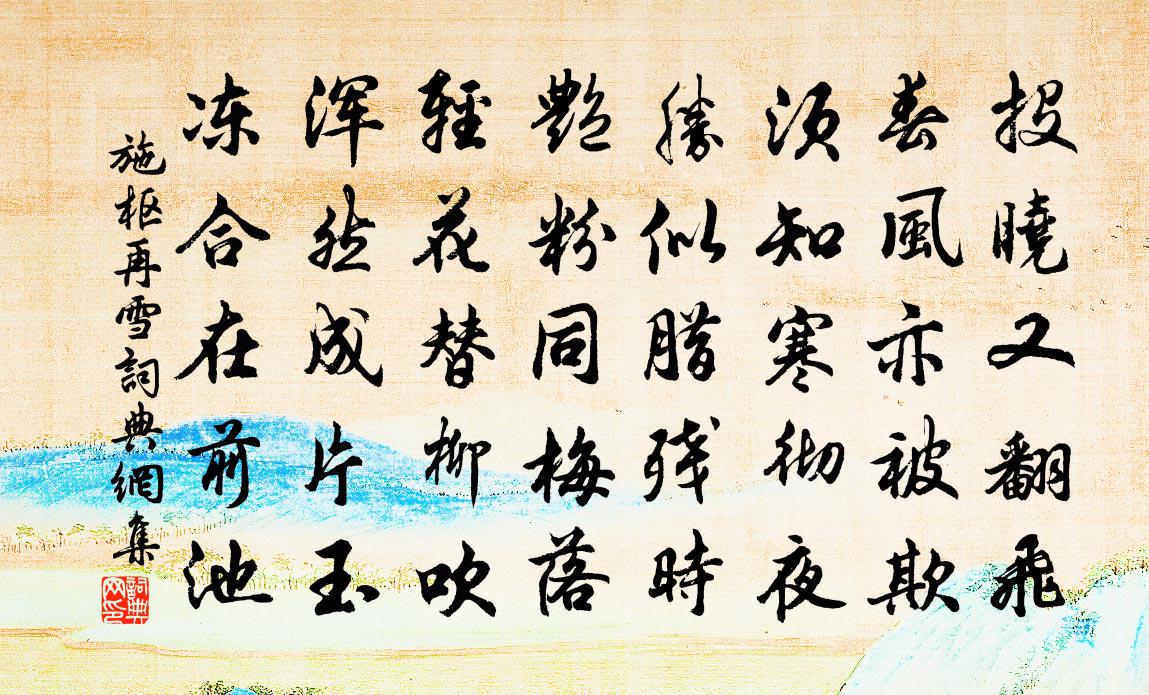 投曉又翻飛
春風亦被欺
須知寒彻夜
勝似腊残時
艷粉同梅落
輕花替柳吹
浑然成片玉
冻合在前池
施枢再雪詞典網集
詞典网印